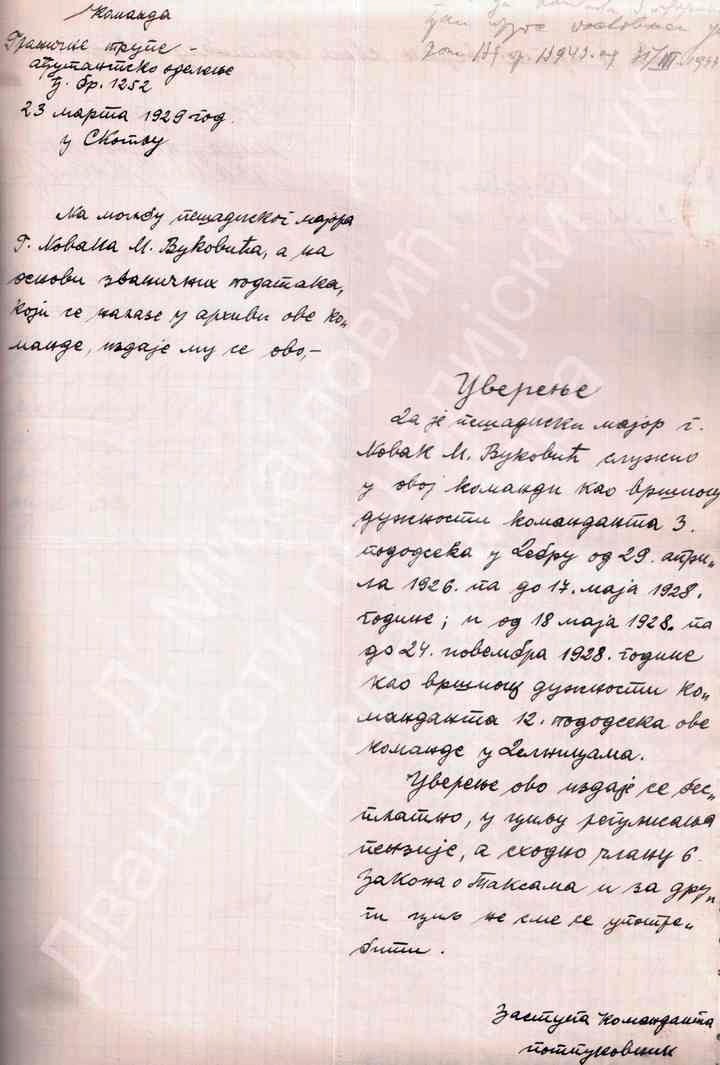 Команда
Граничне трупе -
ађутантско одељење
Ђ. бр. 1252
23 марта 1929 год.
у Скопљу
На молбу пешадиског мајора
Г. Новака М. Вуковића, а на
основи званичних података,
који се налазе у архиви ове ко„
манде, издаје му се ово,-
Уверење
Да је пешадиски мајор г.
Новак М. Вуковић служио
у овој команди као вршиоц
дужности команданта 3.
пододсека у Дебру од 29. апри„
ла 1926. па до 17. маја 1928.
године; и од 18 маја 1928. па
до 24. новембра 1928. године
као вршиоц дужности ко„
манданта 12. пододсека ове
команде у Делницама.
Уверење ово издаје се бес„
платно, у циљу регулисања
пензије, а сходно члану 6.
Закона о Таксама и за дру„
ги циљ не сме се употре„
бити.
Заступа Команданта
потпуковник